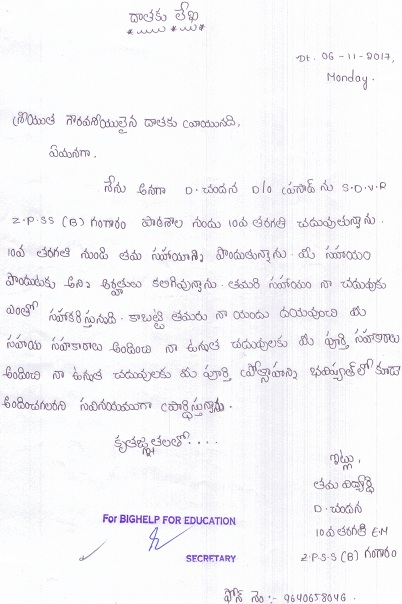 దాతకు లేఖ
Dt. 06-11-2017,
Monday.
శ్రీయుత గౌరవనీయులైన దాతకు వ్రాయునది,
ఏమనగా,
నేను అనగా D.చందన D/o ప్రసాద్ ను S.D.V.R
Z.P.S.S (B) గంగారం పాఠశాల నందు 10వ తరగతి చదువుతున్నాను.
10వ తరగతి నుండి తమ సహాయాన్ని పొందుతున్నాను. మీ సహాయం
పొందుటకు అన్ని అర్హతలు కలిగివున్నాను. తమరి సహాయం నా చదువుకు
ఎంతో సహాకరిస్తునది. కాబట్టి తమరు నా యందు దయవుంచి మీ
సహాయ సహకారాలు అందించి నా ఉన్నత చదువులకు మీ పూర్తి సహాకారాలు
అందించి నా ఉన్నత చదువులకు మీ పూర్తి ప్రోత్సాహాన్ని భవిష్యత్ లో కూడా
అందించగలరని సవినయముగా ప్రార్థిస్తున్నాను.
కృతజ్ఞతలతో....
ఇట్లు,
తమ విద్యార్థి
D.చందన
10వ తరగతి E.M
Z.P.S.S (B) గంగారం
For BIGHELP FOR EDUCATION
SECRETARY
ఫోన్ నెం:- 9640658046.